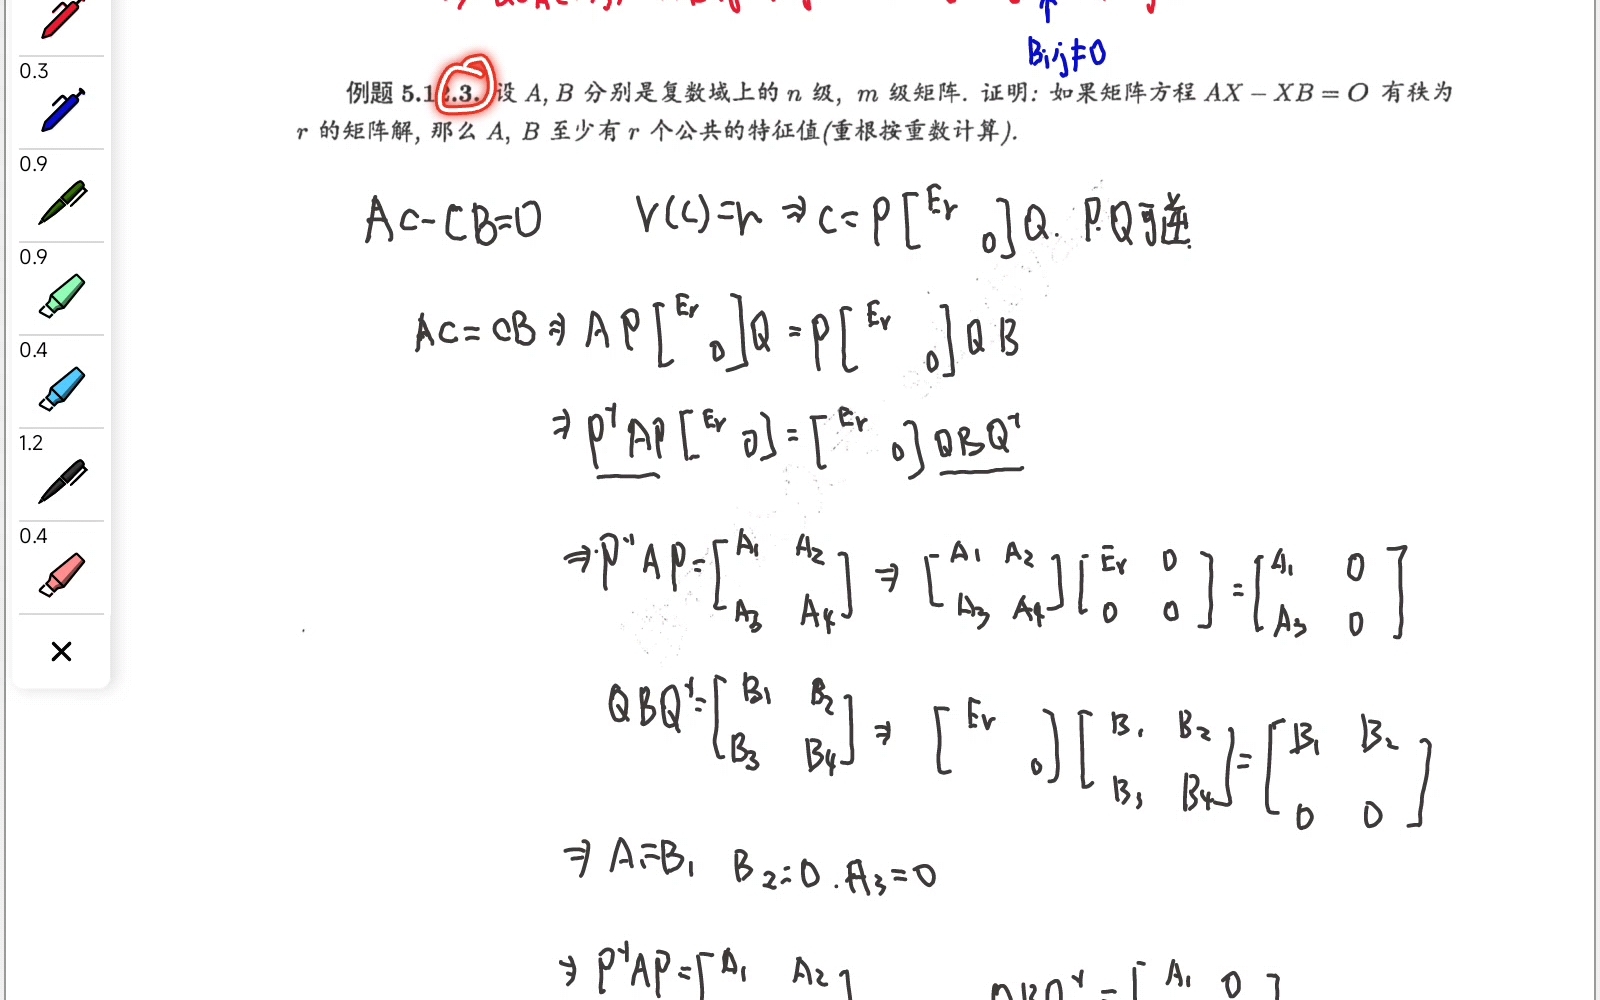 Bij≠0
0.3
0.9
0.9
0.4
1.2
0.4
例题 5.1 .3. 设 A, B 分别是复数域上的 n 级, m 级矩阵. 证明: 如果矩阵方程 AX − XB = O 有秩为
r 的矩阵解, 那么 A, B 至少有 r 个公共的特征值(重根按重数计算).
AC-CB=0 r(C)=r ⇒ C=P[Er 0]Q. P.Q可逆.
AC=CB ⇒ AP[Er 0]Q=P[Er 0]QB
⇒ P⁻¹AP[Er 0]=[Er 0]QBQ⁻¹
⇒ P⁻¹AP=[A₁ A₂ A₃ A₄] ⇒ [A₁ A₂ A₃ A₄][Er 0 0 0]=[A₁ 0 A₃ 0]
QBQ⁻¹=[B₁ B₂ B₃ B₄] ⇒ [Er 0][B₁ B₂ B₃ B₄]=[B₁ B₂ 0 0]
⇒ A₁=B₁ B₂=0. A₃=0
⇒ P⁻¹AP=[A₁ A₂] QBQ⁻¹=[A₁ 0]